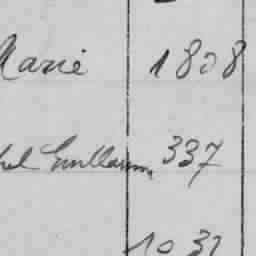 Marie 1808
hel Guillaum 337
1031